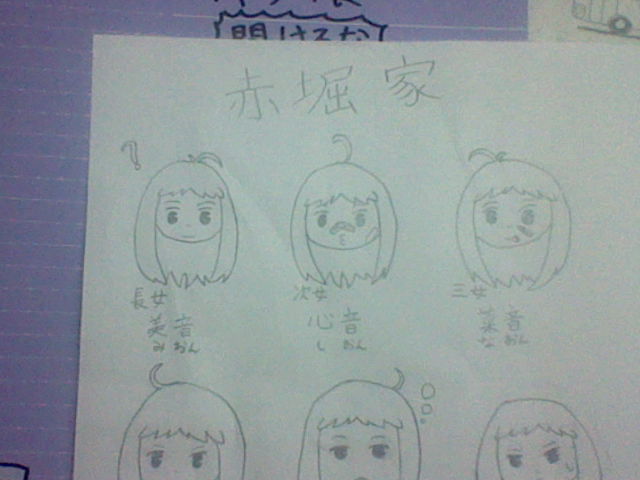 開けるな
赤堀家
?
長女
美音
みおん
次女
心音
しおん
三女
菜音
なおん